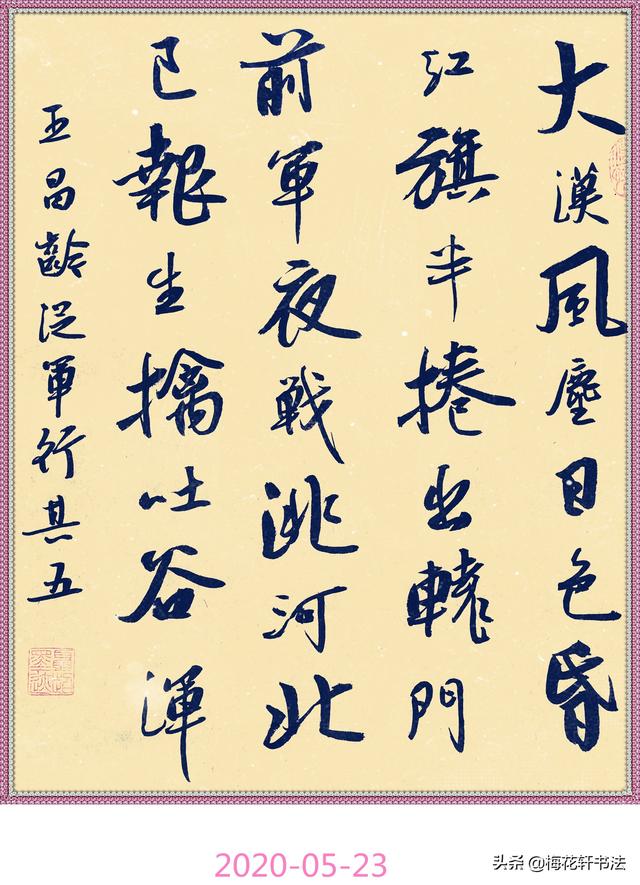 大漠風塵日色昏
红旗半捲出轅門
前軍夜戰洮河北
已報生擒吐谷渾
王昌齡從軍行其五
2020-05-23
头条 @梅花轩书法